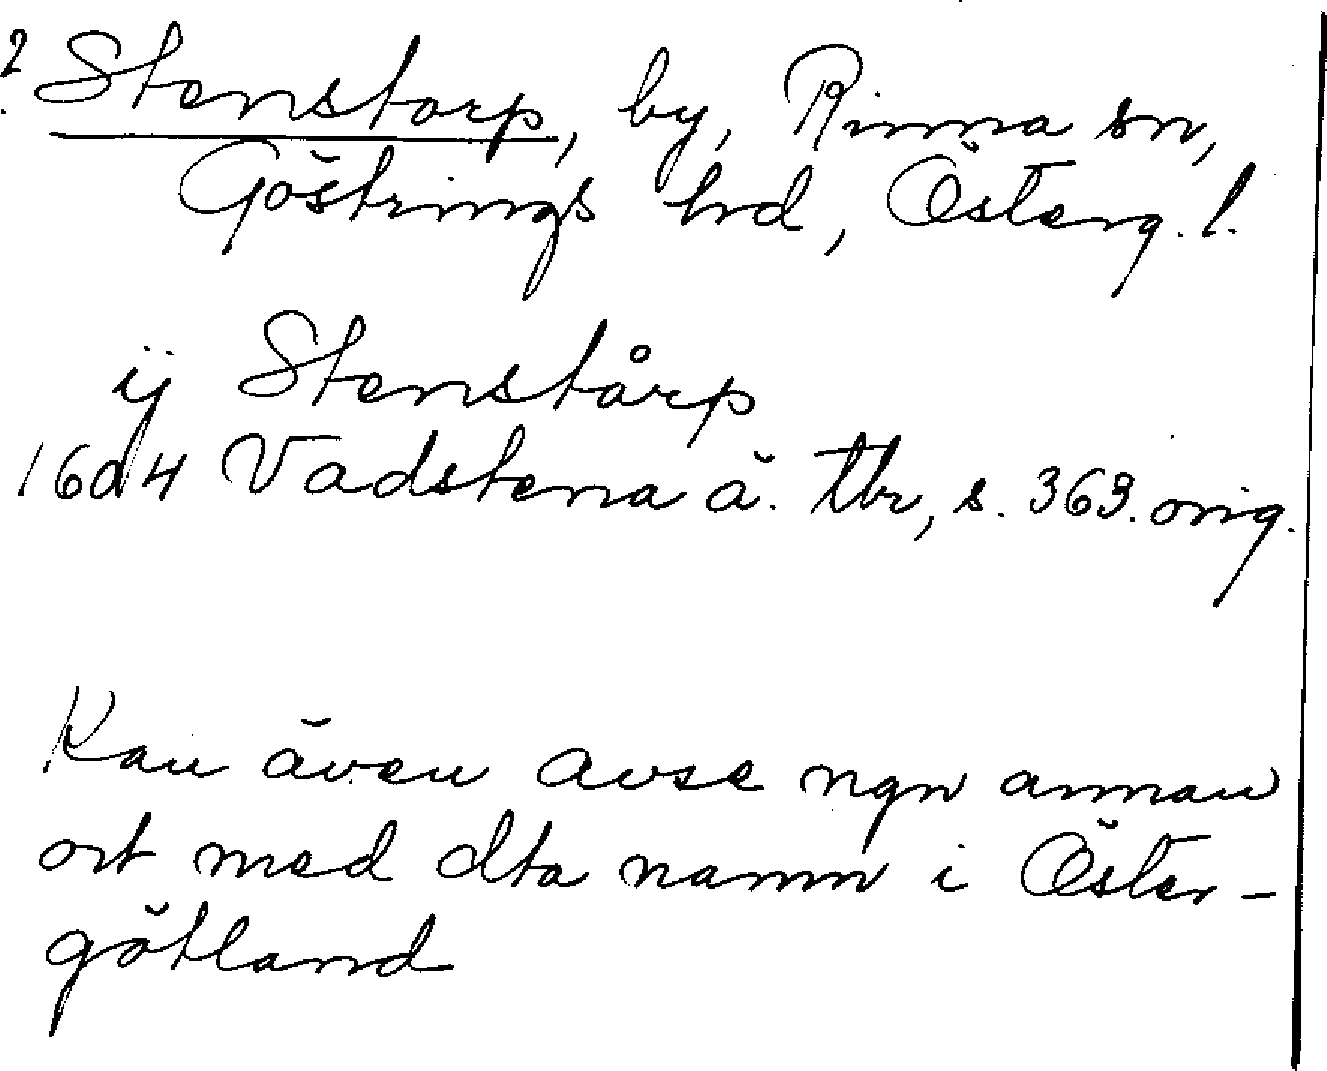 ? Stenstorp, by, Rinna sn,
Göstrings hd, Österg.l.
ij Stenstårp
1604 Vadstena ä. tbr, s. 363. orig.
Kan även avse ngn annan
ort med dta namn i Öster-
götland